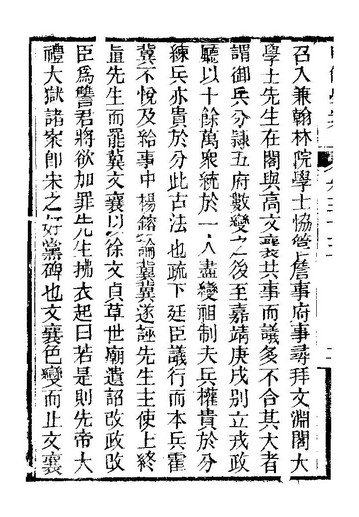 召入兼翰林院學士協管詹事府事尋拜文淵閣大
學士先生在閣與高文襄共事而議多不合其大者
謂御兵分隷五府數變之後至嘉靖庚戌別立戎政
廳以十餘萬衆統於一人盡變祖制夫兵權貴於分
練兵亦貴於分此古法也疏下廷臣議行而本兵霍
冀不悅及給事中楊鎔論冀冀遂誣先生主使上終
直先生而罷冀文襄以徐文貞草世廟遺詔改政改
臣爲讐君將欲加罪先生拂衣起曰若是則先帝大
禮大獄諸案卽宋之奸黨碑也文襄色變而止文襄